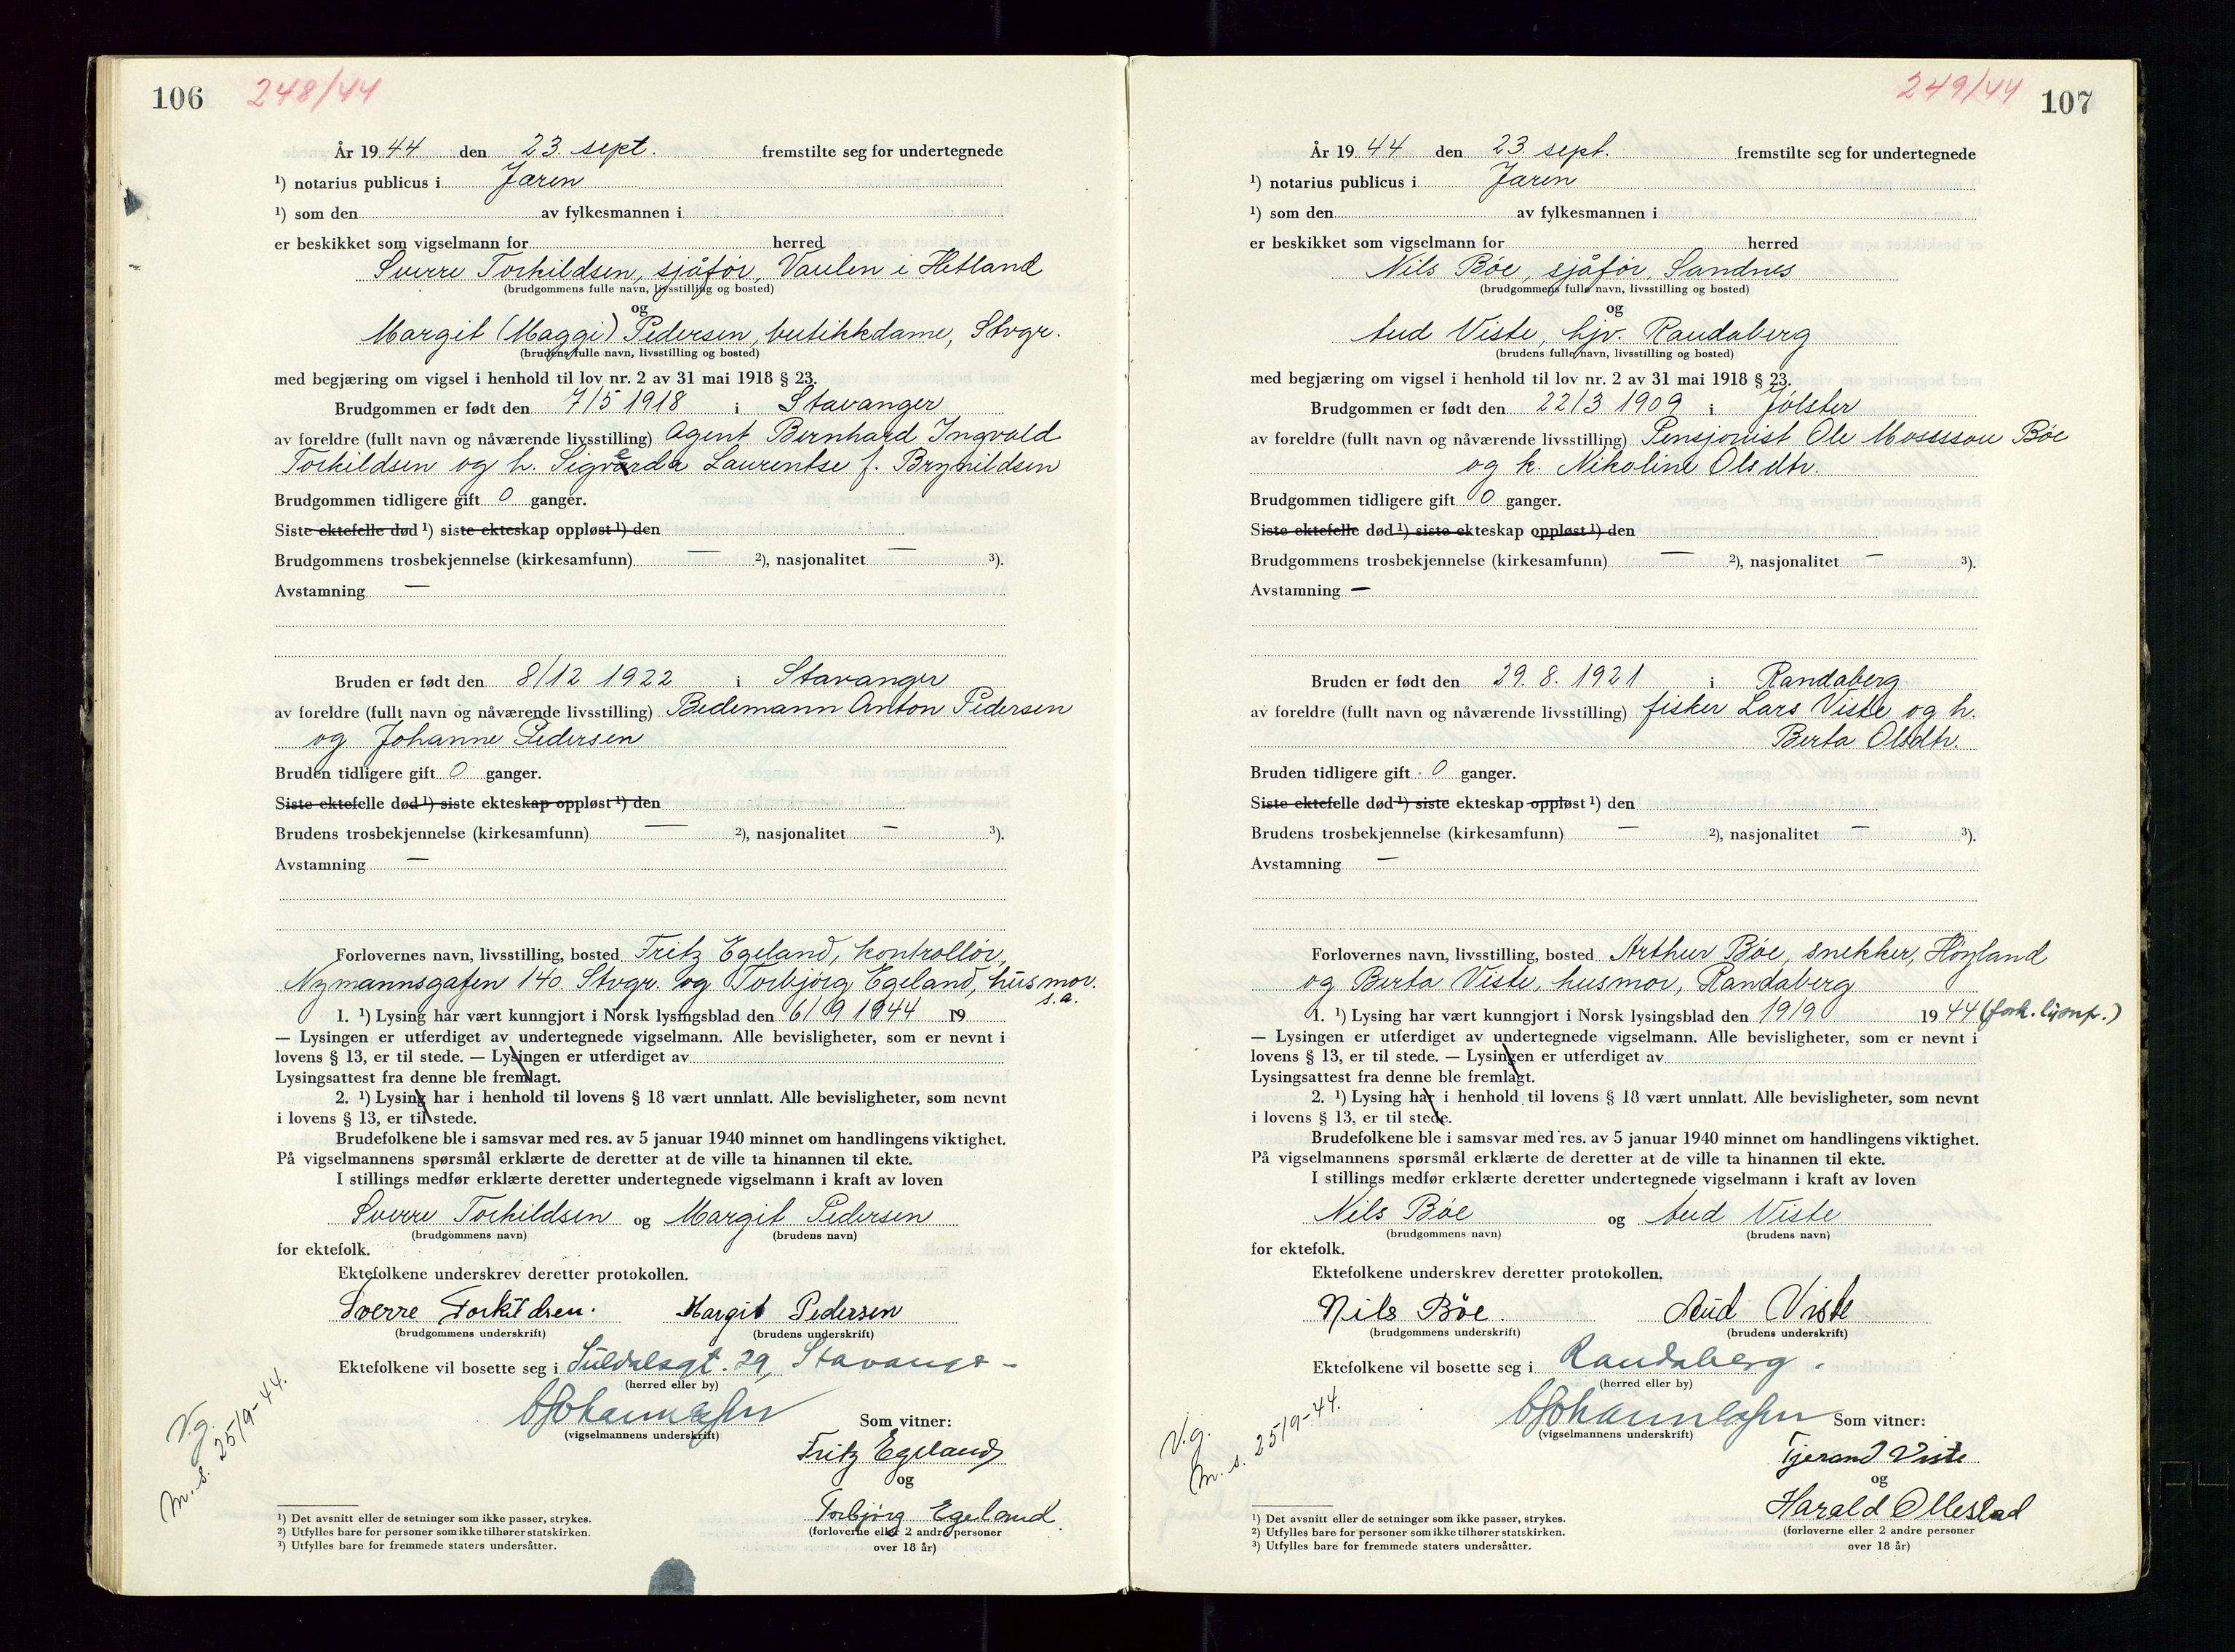 106 248/44
År 1944 den 23. sept. fremstilte seg for undertegnede
¹) notarius publicus i Jæren
¹) som den av fylkesmannen i
er beskikket som vigselmann for herred
Sverre Torkildsen, sjåfør, Vaulen i Hetland
(brudgommens fulle navn, livsstilling og bosted)
og
Margit (Maggi) Pedersen, butikkdame, Stvgr.
(brudens fulle navn, livsstilling og bosted)
med begjæring om vigsel i henhold til lov nr. 2 av 31 mai 1918 § 23.
Brudgommen er født den 7/5 1918 i Stavanger
av foreldre (fullt navn og nåværende livsstilling) Agent Bernhard Ingvald
Torkildsen og h. Sigverda Laurentse f. Brynildsen
Brudgommen tidligere gift 0 ganger.
Siste ektefelle død ¹) siste ekteskap oppløst ¹) den
Brudgommens trosbekjennelse (kirkesamfunn) — ²), nasjonalitet — ³).
Avstamning —
Bruden er født den 8/12 1922 i Stavanger
av foreldre (fullt navn og nåværende livsstilling) Bedemann Anton Pedersen
og Johanne Pedersen
Bruden tidligere gift 0 ganger.
Siste ektefelle død ¹) siste ekteskap oppløst ¹) den
Brudens trosbekjennelse (kirkesamfunn) — ²), nasjonalitet — ³).
Avstamning —
Forlovernes navn, livsstilling, bosted Fritz Egeland, kontrollør,
Nymannsgaten 140. Stvgr. og Torbjørg Egeland, husmor.
s.a.
1. ¹) Lysing har vært kunngjort i Norsk lysingsblad den 6/9 1944 19
— Lysingen er utferdiget av undertegnede vigselmann. Alle bevisligheter, som er nevnt i
lovens § 13, er til stede. — Lysingen er utferdiget av
Lysingsattest fra denne ble fremlagt.
2. ¹) Lysing har i henhold til lovens § 18 vært unnlatt. Alle bevisligheter, som nevnt
i lovens § 13, er til stede.
Brudefolkene ble i samsvar med res. av 5 januar 1940 minnet om handlingens viktighet.
På vigselmannens spørsmål erklærte de deretter at de ville ta hinannen til ekte.
I stillings medfør erklærte deretter undertegnede vigselmann i kraft av loven
Sverre Torkildsen og Margit Pedersen
(brudgommens navn) (brudens navn)
for ektefolk.
Ektefolkene underskrev deretter protokollen.
Sverre Torkildsen. Margit Pedersen
(brudgommens underskrift) (brudens underskrift)
Ektefolkene vil bosette seg i Suldalsgt. 29, Stavanger
(herred eller by)
V.g.
m. s. 25/9-44.
(vigselmannens underskrift)
Som vitner:
Fritz Egeland
og
Torbjørg Egeland.
(forloverne eller 2 andre personer
over 18 år)
¹) Det avsnitt eller de setninger som ikke passer, strykes.
²) Utfylles bare for personer som ikke tilhører statskirken.
³) Utfylles bare for fremmede staters undersåtter.
249/44 107
År 1944 den 23. sept. fremstilte seg for undertegnede
¹) notarius publicus i Jæren
¹) som den av fylkesmannen i
er beskikket som vigselmann for herred
Nils Bøe, sjåfør, Sandnes
(brudgommens fulle navn, livsstilling og bosted)
og
Aud Viste, hjv. Randaberg
(brudens fulle navn, livsstilling og bosted)
med begjæring om vigsel i henhold til lov nr. 2 av 31 mai 1918 § 23.
Brudgommen er født den 22/3 1909 i Jølster
av foreldre (fullt navn og nåværende livsstilling) Pensjonist Ole Mosesson Bøe
og h. Nikoline Olsdtr.
Brudgommen tidligere gift 0 ganger.
Siste ektefelle død ¹) siste ekteskap oppløst ¹) den
Brudgommens trosbekjennelse (kirkesamfunn) — ²), nasjonalitet — ³).
Avstamning —
Bruden er født den 29. 8. 1921 i Randaberg
av foreldre (fullt navn og nåværende livsstilling) fisker Lars Viste og h.
Berta Olsdtr.
Bruden tidligere gift 0 ganger.
Siste ektefelle død ¹) siste ekteskap oppløst ¹) den
Brudens trosbekjennelse (kirkesamfunn) — ²), nasjonalitet — ³).
Avstamning —
Forlovernes navn, livsstilling, bosted Arthur Bøe, snekker, Høyland
og Berta Viste, husmor, Randaberg
1. ¹) Lysing har vært kunngjort i Norsk lysingsblad den 19/9 1944 (fork. lysnfr.)
— Lysingen er utferdiget av undertegnede vigselmann. Alle bevisligheter, som er nevnt i
lovens § 13, er til stede. — Lysingen er utferdiget av
Lysingsattest fra denne ble fremlagt.
2. ¹) Lysing har i henhold til lovens § 18 vært unnlatt. Alle bevisligheter, som nevnt
i lovens § 13, er til stede.
Brudefolkene ble i samsvar med res. av 5 januar 1940 minnet om handlingens viktighet.
På vigselmannens spørsmål erklærte de deretter at de ville ta hinannen til ekte.
I stillings medfør erklærte deretter undertegnede vigselmann i kraft av loven
Nils Bøe og Aud Viste
(brudgommens navn) (brudens navn)
for ektefolk.
Ektefolkene underskrev deretter protokollen.
Nils Bøe. Aud Viste
(brudgommens underskrift) (brudens underskrift)
Ektefolkene vil bosette seg i Randaberg.
(herred eller by)
V.g.
m. s. 25/9-44.
(vigselmannens underskrift)
Som vitner:
Tjerand Viste
og
Harald Ollestad
(forloverne eller 2 andre personer
over 18 år)
¹) Det avsnitt eller de setninger som ikke passer, strykes.
²) Utfylles bare for personer som ikke tilhører statskirken.
³) Utfylles bare for fremmede staters undersåtter.